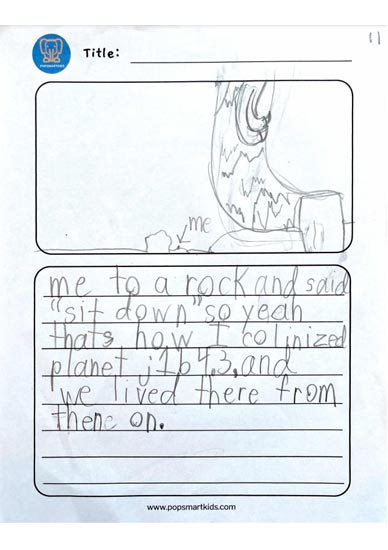 11
POPSMARTKIDS
Title:
me
me to a rock and said
"sit down" so yeah
thats how I colinized
planet j1b4.3. and
we lived there from
thene on.
www.popsmartkids.com